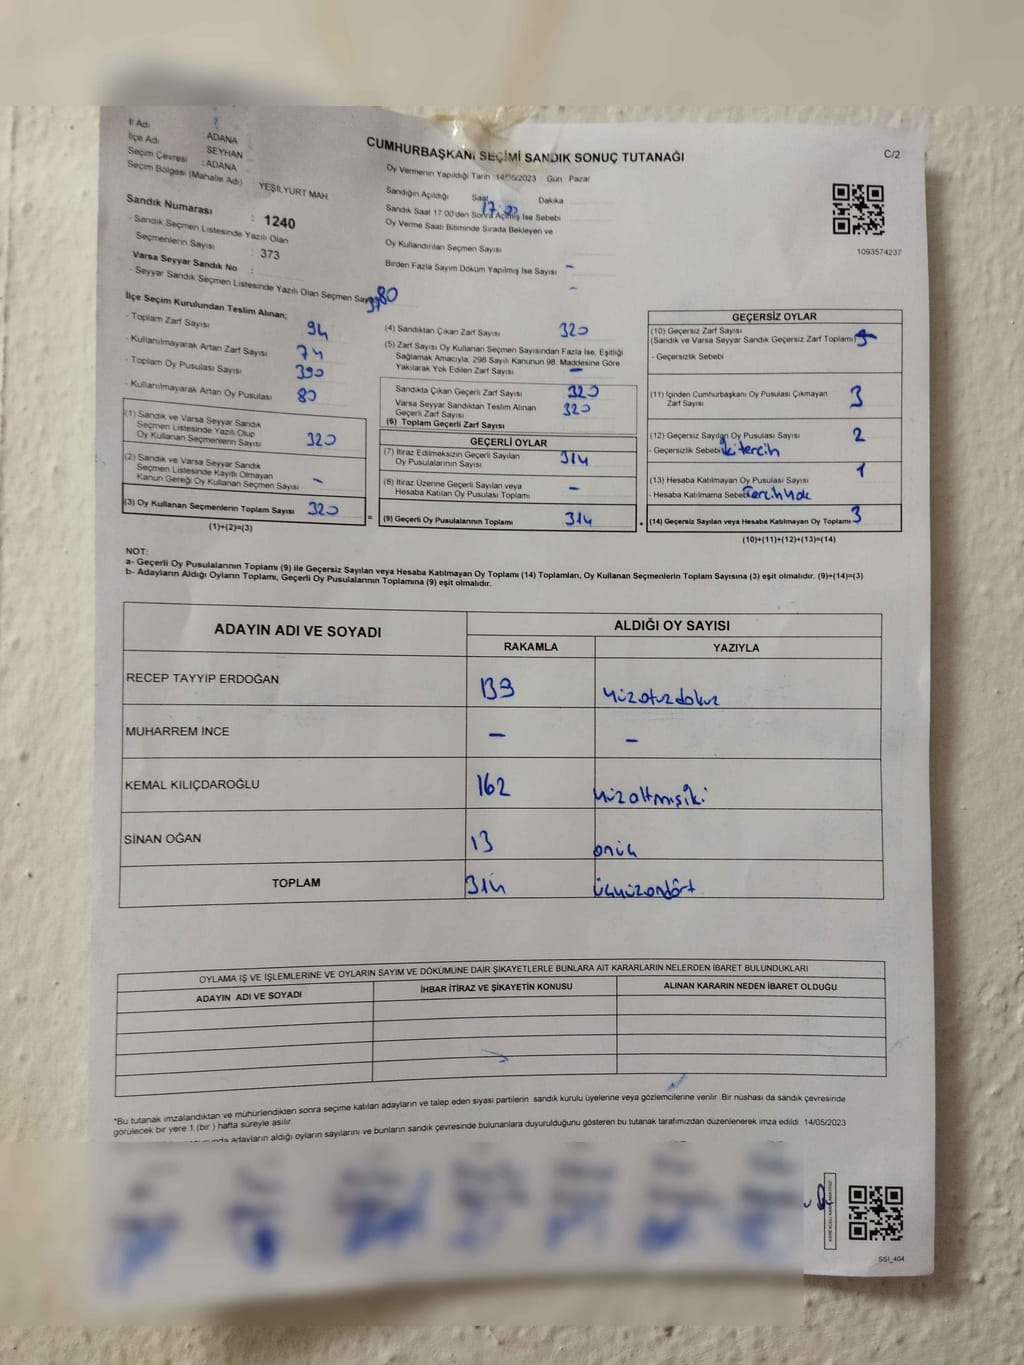 C/2
İl Adı : ADANA
İlçe Adı : SEYHAN
Seçim Çevresi : ADANA
Seçim Bölgesi (Mahalle Adı) YEŞİLYURT MAH
Sandık Numarası : 1240
- Sandık Seçmen Listesinde Yazılı Olan
Seçmenlerin Sayısı : 373
Varsa Seyyar Sandık No :
- Seyyar Sandık Seçmen Listesinde Yazılı Olan Seçmen
CUMHURBAŞKANI SEÇİMİ SANDIK SONUÇ TUTANAĞI
Oy Vermenin Yapıldığı Tarih 14/05/2023 Gün : Pazar
Sandığın Açıldığı Saat 17 Dakika
Sandık Saat 17:00'den Sonra Açılmış İse Sebebi
Oy Verme Saati Bitiminde Sırada Bekleyen ve
Oy Kullandırılan Seçmen Sayısı
Birden Fazla Sayım Döküm Yapılmış İse Sayısı -
1093574237
İlçe Seçim Kurulundan Teslim Alınan;
- Toplam Zarf Sayısı 94
- Kullanılmayarak Artan Zarf Sayısı 74
- Toplam Oy Pusulası Sayısı 390
- Kullanılmayarak Artan Oy Pusulası 80
(1) Sandık ve Varsa Seyyar Sandık
Seçmen Listesinde Yazılı Olup
Oy Kullanan Seçmenlerin Sayısı 320
(2) Sandık ve Varsa Seyyar Sandık
Seçmen Listesinde Kayıtlı Olmayan
Kanun Gereği Oy Kullanan Seçmen Sayısı -
(3) Oy Kullanan Seçmenlerin Toplam Sayısı 320
(1)+(2)=(3)
=
(4) Sandıktan Çıkan Zarf Sayısı 320
(5) Zarf Sayısı Oy Kullanan Seçmen Sayısından Fazla İse, Eşitliği
Sağlamak Amacıyla, 298 Sayılı Kanunun 98. Maddesine Göre
Yakılarak Yok Edilen Zarf Sayısı -
Sandıkta Çıkan Geçerli Zarf Sayısı 320
Varsa Seyyar Sandıktan Teslim Alınan
Geçerli Zarf Sayısı 320
(6) Toplam Geçerli Zarf Sayısı
GEÇERLİ OYLAR
(7) İtiraz Edilmeksizin Geçerli Sayılan
Oy Pusulalarının Sayısı 314
(8) İtiraz Üzerine Geçerli Sayılan veya
Hesaba Katılan Oy Pusulası Toplamı -
(9) Geçerli Oy Pusulalarının Toplamı 314
+
GEÇERSİZ OYLAR
(10) Geçersiz Zarf Sayısı
(Sandık ve Varsa Seyyar Sandık Geçersiz Zarf Toplamı)
- Geçersizlik Sebebi
(11) İçinden Cumhurbaşkanı Oy Pusulası Çıkmayan
Zarf Sayısı 3
(12) Geçersiz Sayılan Oy Pusulası Sayısı 2
- Geçersizlik Sebebi iki tercih
(13) Hesaba Katılmayan Oy Pusulası Sayısı 1
- Hesaba Katılmama Sebebi Tercih Yok
(14) Geçersiz Sayılan veya Hesaba Katılmayan Oy Toplamı 3
(10)+(11)+(12)+(13)=(14)
NOT:
a- Geçerli Oy Pusulalarının Toplamı (9) ile Geçersiz Sayılan veya Hesaba Katılmayan Oy Toplamı (14) Toplamları, Oy Kullanan Seçmenlerin Toplam Sayısına (3) eşit olmalıdır. (9)+(14)=(3)
b- Adayların Aldığı Oyların Toplamı, Geçerli Oy Pusulalarının Toplamına (9) eşit olmalıdır.
ADAYIN ADI VE SOYADI ALDIĞI OY SAYISI
RAKAMLA YAZIYLA
RECEP TAYYİP ERDOĞAN 139 Yüzotuzdokuz
MUHARREM İNCE - -
KEMAL KILIÇDAROĞLU 162 Yüzaltmışiki
SİNAN OĞAN 13 onüç
TOPLAM 314 Üçyüzondört
OYLAMA İŞ VE İŞLEMLERİNE VE OYLARIN SAYIM VE DÖKÜMÜNE DAİR ŞİKAYETLERLE BUNLARA AİT KARARLARIN NELERDEN İBARET BULUNDUKLARI
ADAYIN ADI VE SOYADI İHBAR İTİRAZ VE ŞİKAYETİN KONUSU ALINAN KARARIN NEDEN İBARET OLDUĞU
"Bu tutanak imzalandıktan ve mühürlendikten sonra seçime katılan adayların ve talep eden siyasi partilerin sandık kurulu üyelerine veya gözlemcilerine verilir. Bir nüshası da sandık çevresinde
görülecek bir yere 1 (bir ) hafta süreyle asılır.
adayların aldığı oyların sayılarını ve bunların sandık çevresinde bulunanlara duyurulduğunu gösteren bu tutanak tarafımızdan düzenlenerek imza edildi. 14/05/2023
SSI_404